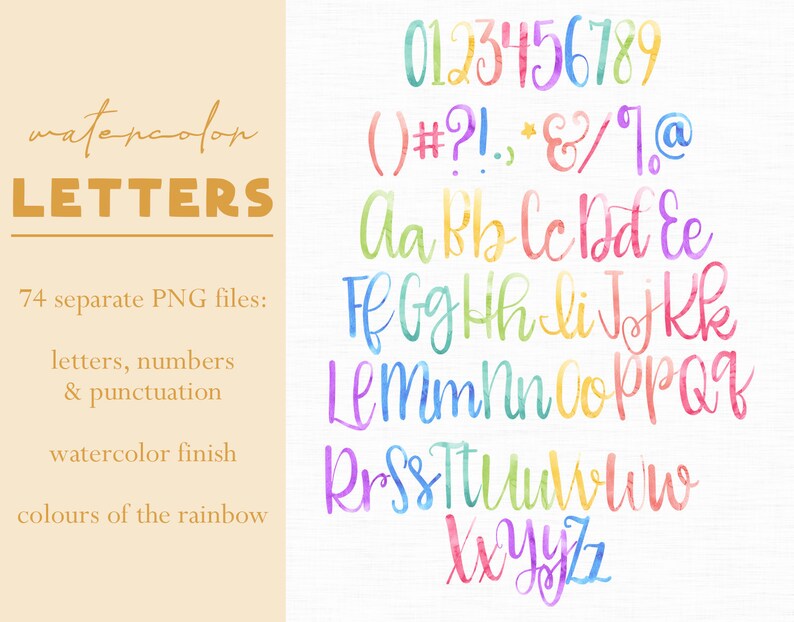 watercolor
LETTERS
74 separate PNG files:
letters, numbers
& punctuation
watercolor finish
colours of the rainbow
0123456789
()#?!.,*&/%@
Aa Bb Cc Dd Ee
Ff Gg Hh Ii Jj Kk
Ll Mm Nn Oo Pp Qq
Rr Ss Tt Uu Vv Ww
Xx Yy Zz